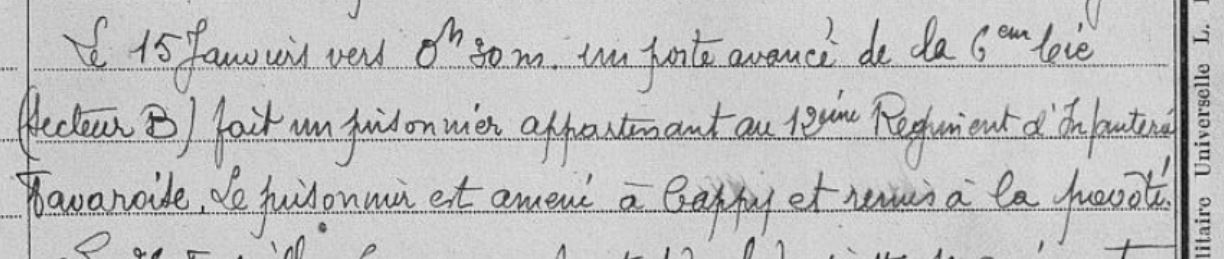 Le 15 Janvier vers 0h 30m. un poste avancé de la 6eme Cie
(Secteur B) fait un prisonnier appartenant au 12eme Regiment d'Infanterie
Bavaroise. Le prisonnier est amené à Cappy et remis à la prévôté.
litaire Universelle L.